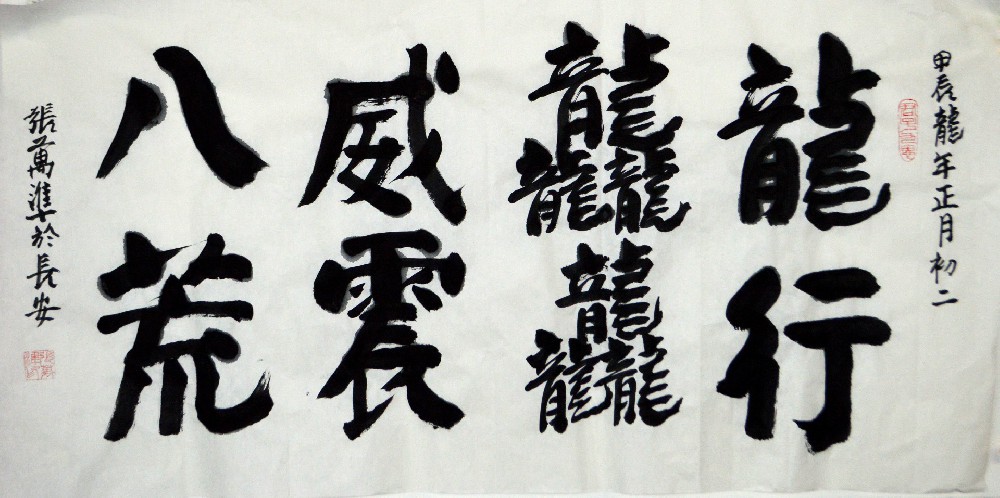 甲辰龍年正月初二
龍行
龘龘
威震
八荒
張萬準於長安